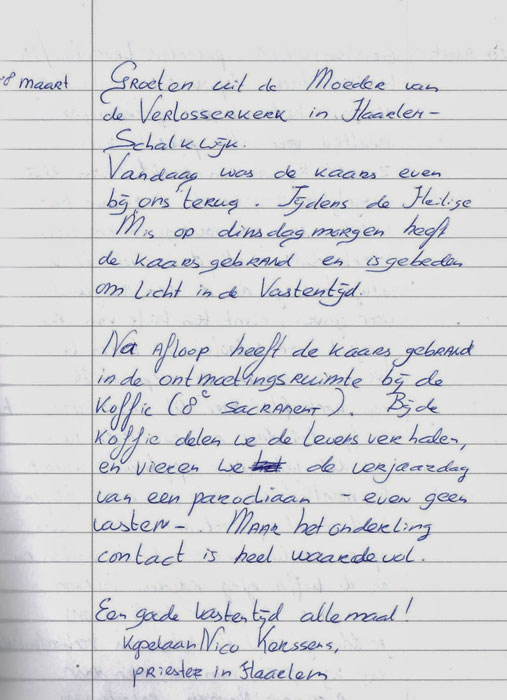 8 maart
Groeten uit de Moeder van
de Verlosserkerk in Haarlem-
Schalkwijk.
Vandaag was de kaars even
bij ons terug. Tijdens de Heilige
Mis op dinsdagmorgen heeft
de kaars gebrand en is gebeden
om licht in de Vastentijd.
Na afloop heeft de kaars gebrand
in de ontmoetingsruimte bij de
koffie (8e sacrament). Bij de
koffie delen we de levensverhalen,
en vieren we de verjaardag
van een parochiaan - even geen
vasten-. Maar het onderling
contact is heel waardevol.
Een goede vastentijd allemaal!
Kapelaan Nico Kerssens,
priester in Haarlem